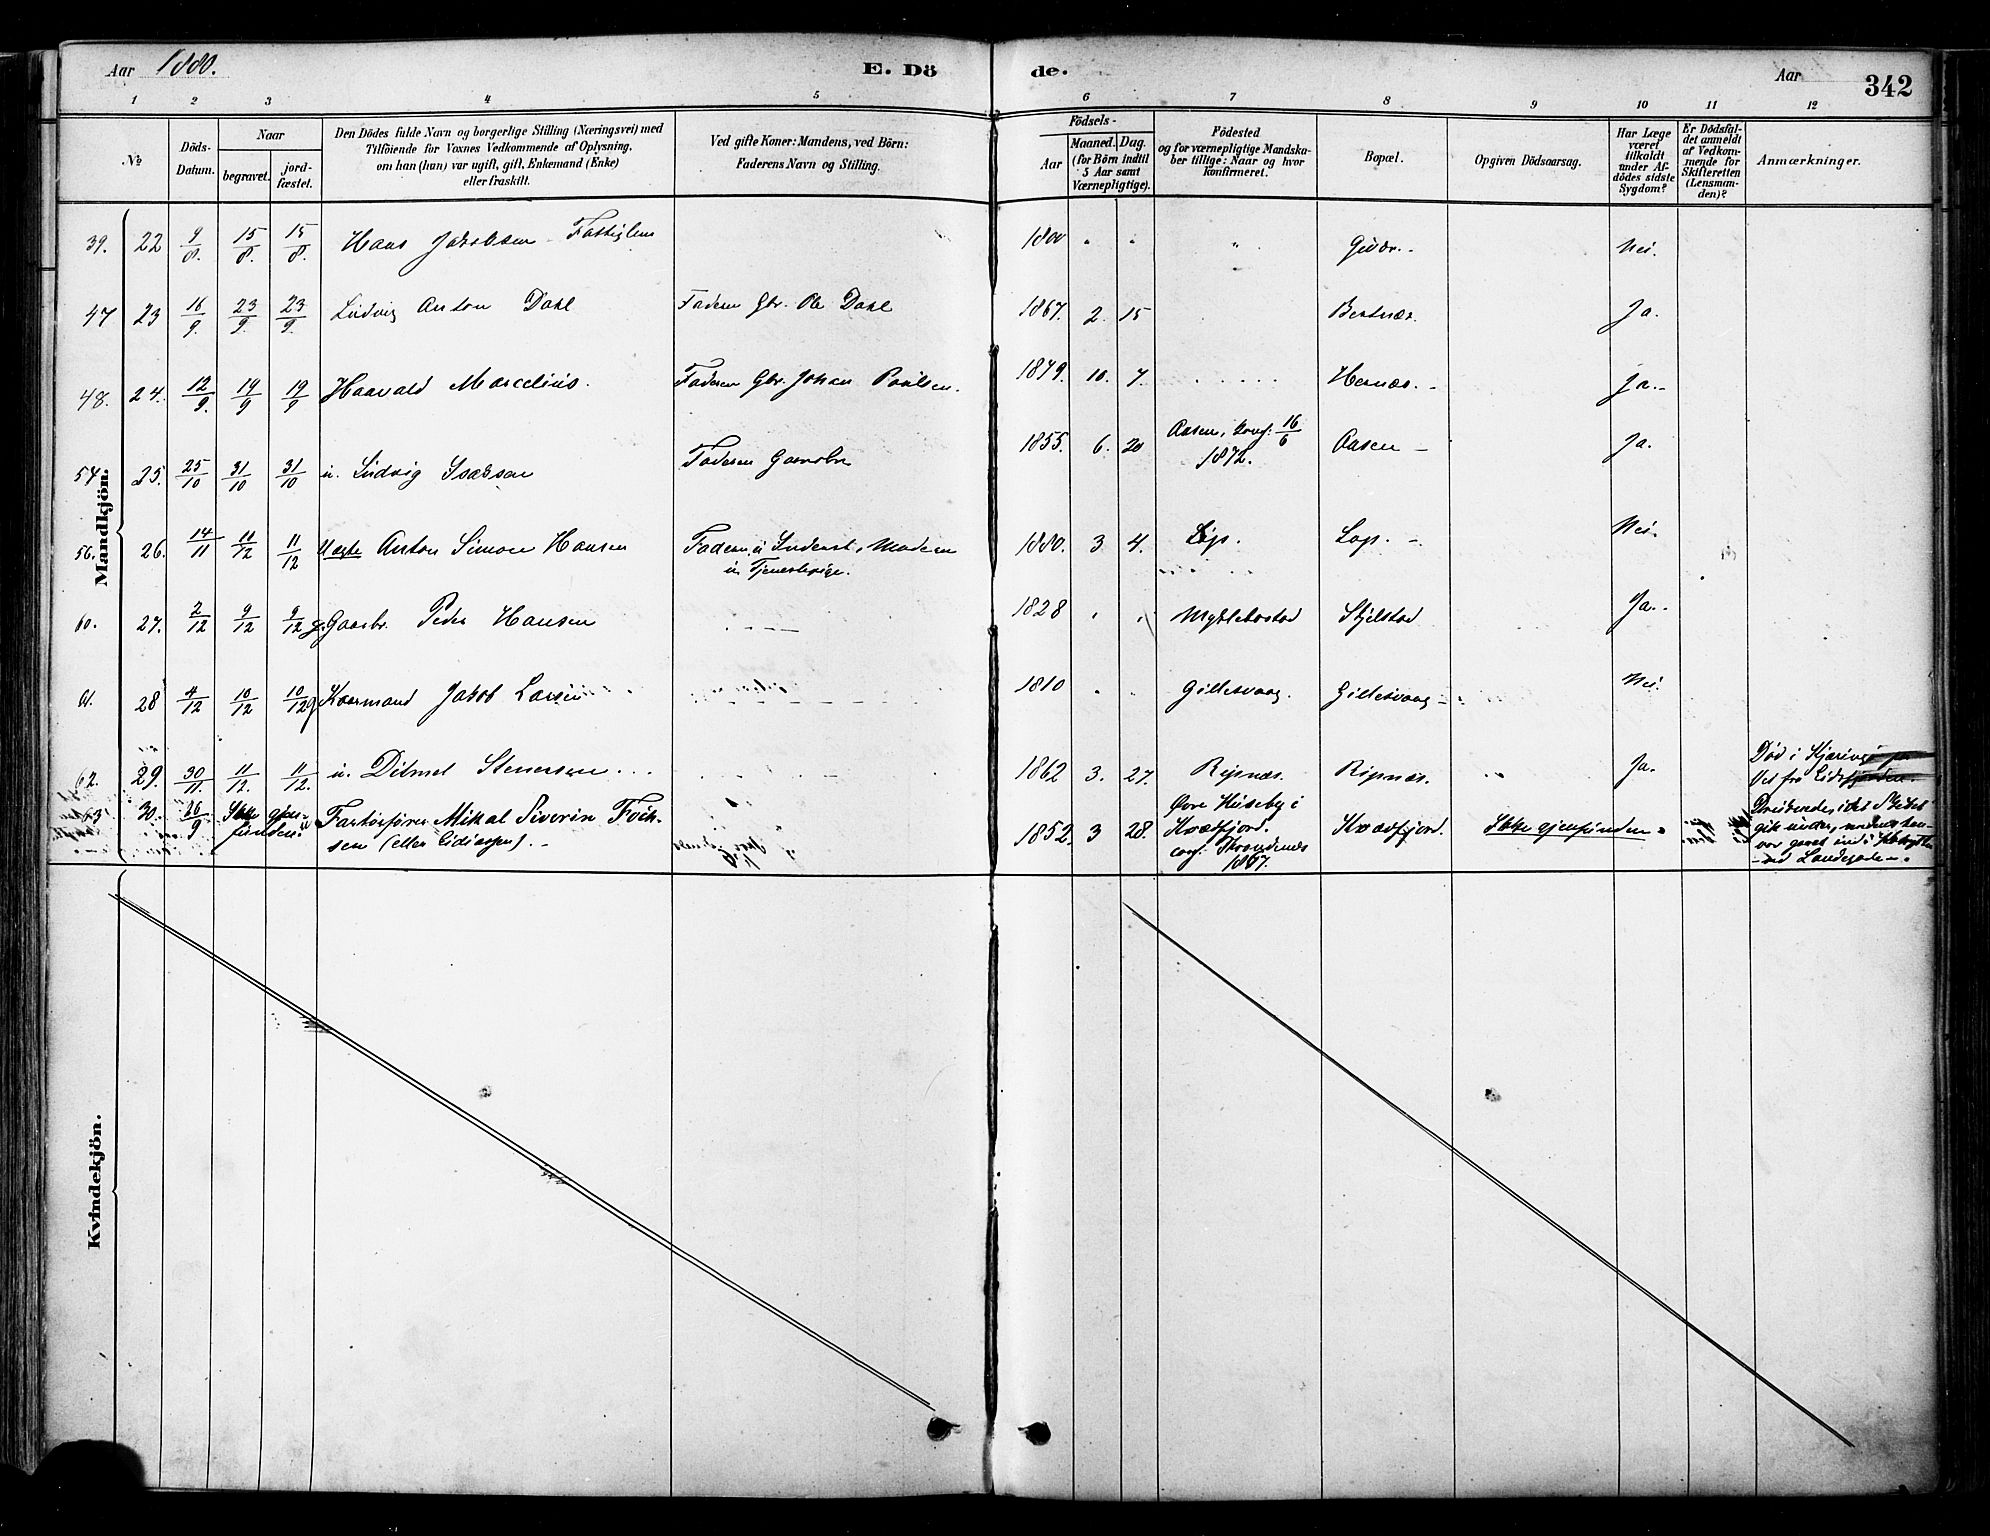 Aar 1880.
E. Dö
de.
Aar
342
1 2 3 4 5 6 7 8 9 10 11 12
No
Döds-
Datum.
Naar
begravet.
jord-
fæstet.
Den Dödes fulde Navn og borgerlige Stilling (Næringsvei) med
Tilföiende for Voxnes Vedkommende af Oplysning,
om han (hun) var ugift, gift, Enkemand (Enke)
eller fraskilt.
Ved gifte Koner: Mandens, ved Börn:
Faderens Navn og Stilling.
Födsels-
Aar
Maaned. Dag.
(for Börn indtil
5 Aar samt
Værnepligtige).
Födested
og for værnepligtige Mandska-
ber tillige: Naar og hvor
konfirmeret.
Bopæl.
Opgiven Dödsaarsag.
Har Læge
været
tilkaldt
under Af-
dödes sidste
Sygdom?
Er Dödsfal-
det anmeldt
af Vedkom-
mende for
Skifteretten
(Lensman-
den)?
Anmærkninger.
Mandkjön.
39. 22 9/8. 15/8. 15/8. Hans Jakobsen Fattiglem 1800 " " " Givær. Nei.
47 23 16/9. 23/9. 23/9. Ludvig Anton Dahl Faderen Gbr. Ole Dahl 1867. 2. 15 Bertnæs. Ja.
48. 24. 12/9. 19/9 19/9 Haavald Marcelius. Faderen Gbr. Johan Poulsen. 1879. 10. 7. Hernæs. Ja.
54 25. 25/10 31/10 31/10 u. Ludvig Isaksen Faderen Gaardbr 1855. 6. 20 Aasen, konf: 16/6
1872. Aasen Ja.
56. 26. 14/11 11/12 11/12 Uægte Anton Simon Hansen Faderen u Inderst, Moderen
u. Tjenestepige. 1880. 3 4. Løp. Løp. Nei.
60. 27. 2/12 9/12 9/12 g. Gaarbr. Peder Hansen 1828 Myklebostad Skjelstad Ja.
61. 28 4/12 10/12 10/12 g Kaarmand Jakob Larsen 1810 Gillesvaag. Gillesvaag Nei.
62. 29. 30/11. 11/12. 11/12. u. Ditmel Steensen 1862 3. 27. Ripnæs. Ripnæs. Ja. Død i Kjæringø
63. 30. 26/9 Ikke gjen-
funden. u Fartøifører Mikal Siverin Fochsen
(eller Eidissen). 1852. 3 28. Øvre Huseby i
Kvædfjord.
conf: Trondenæs
1867. Kvædfjord. Ikke gjenfunden. Druknede, idet Skibet
gik under, medens han
var gaaet ind i
ved Landegode.
Kvindekjön.